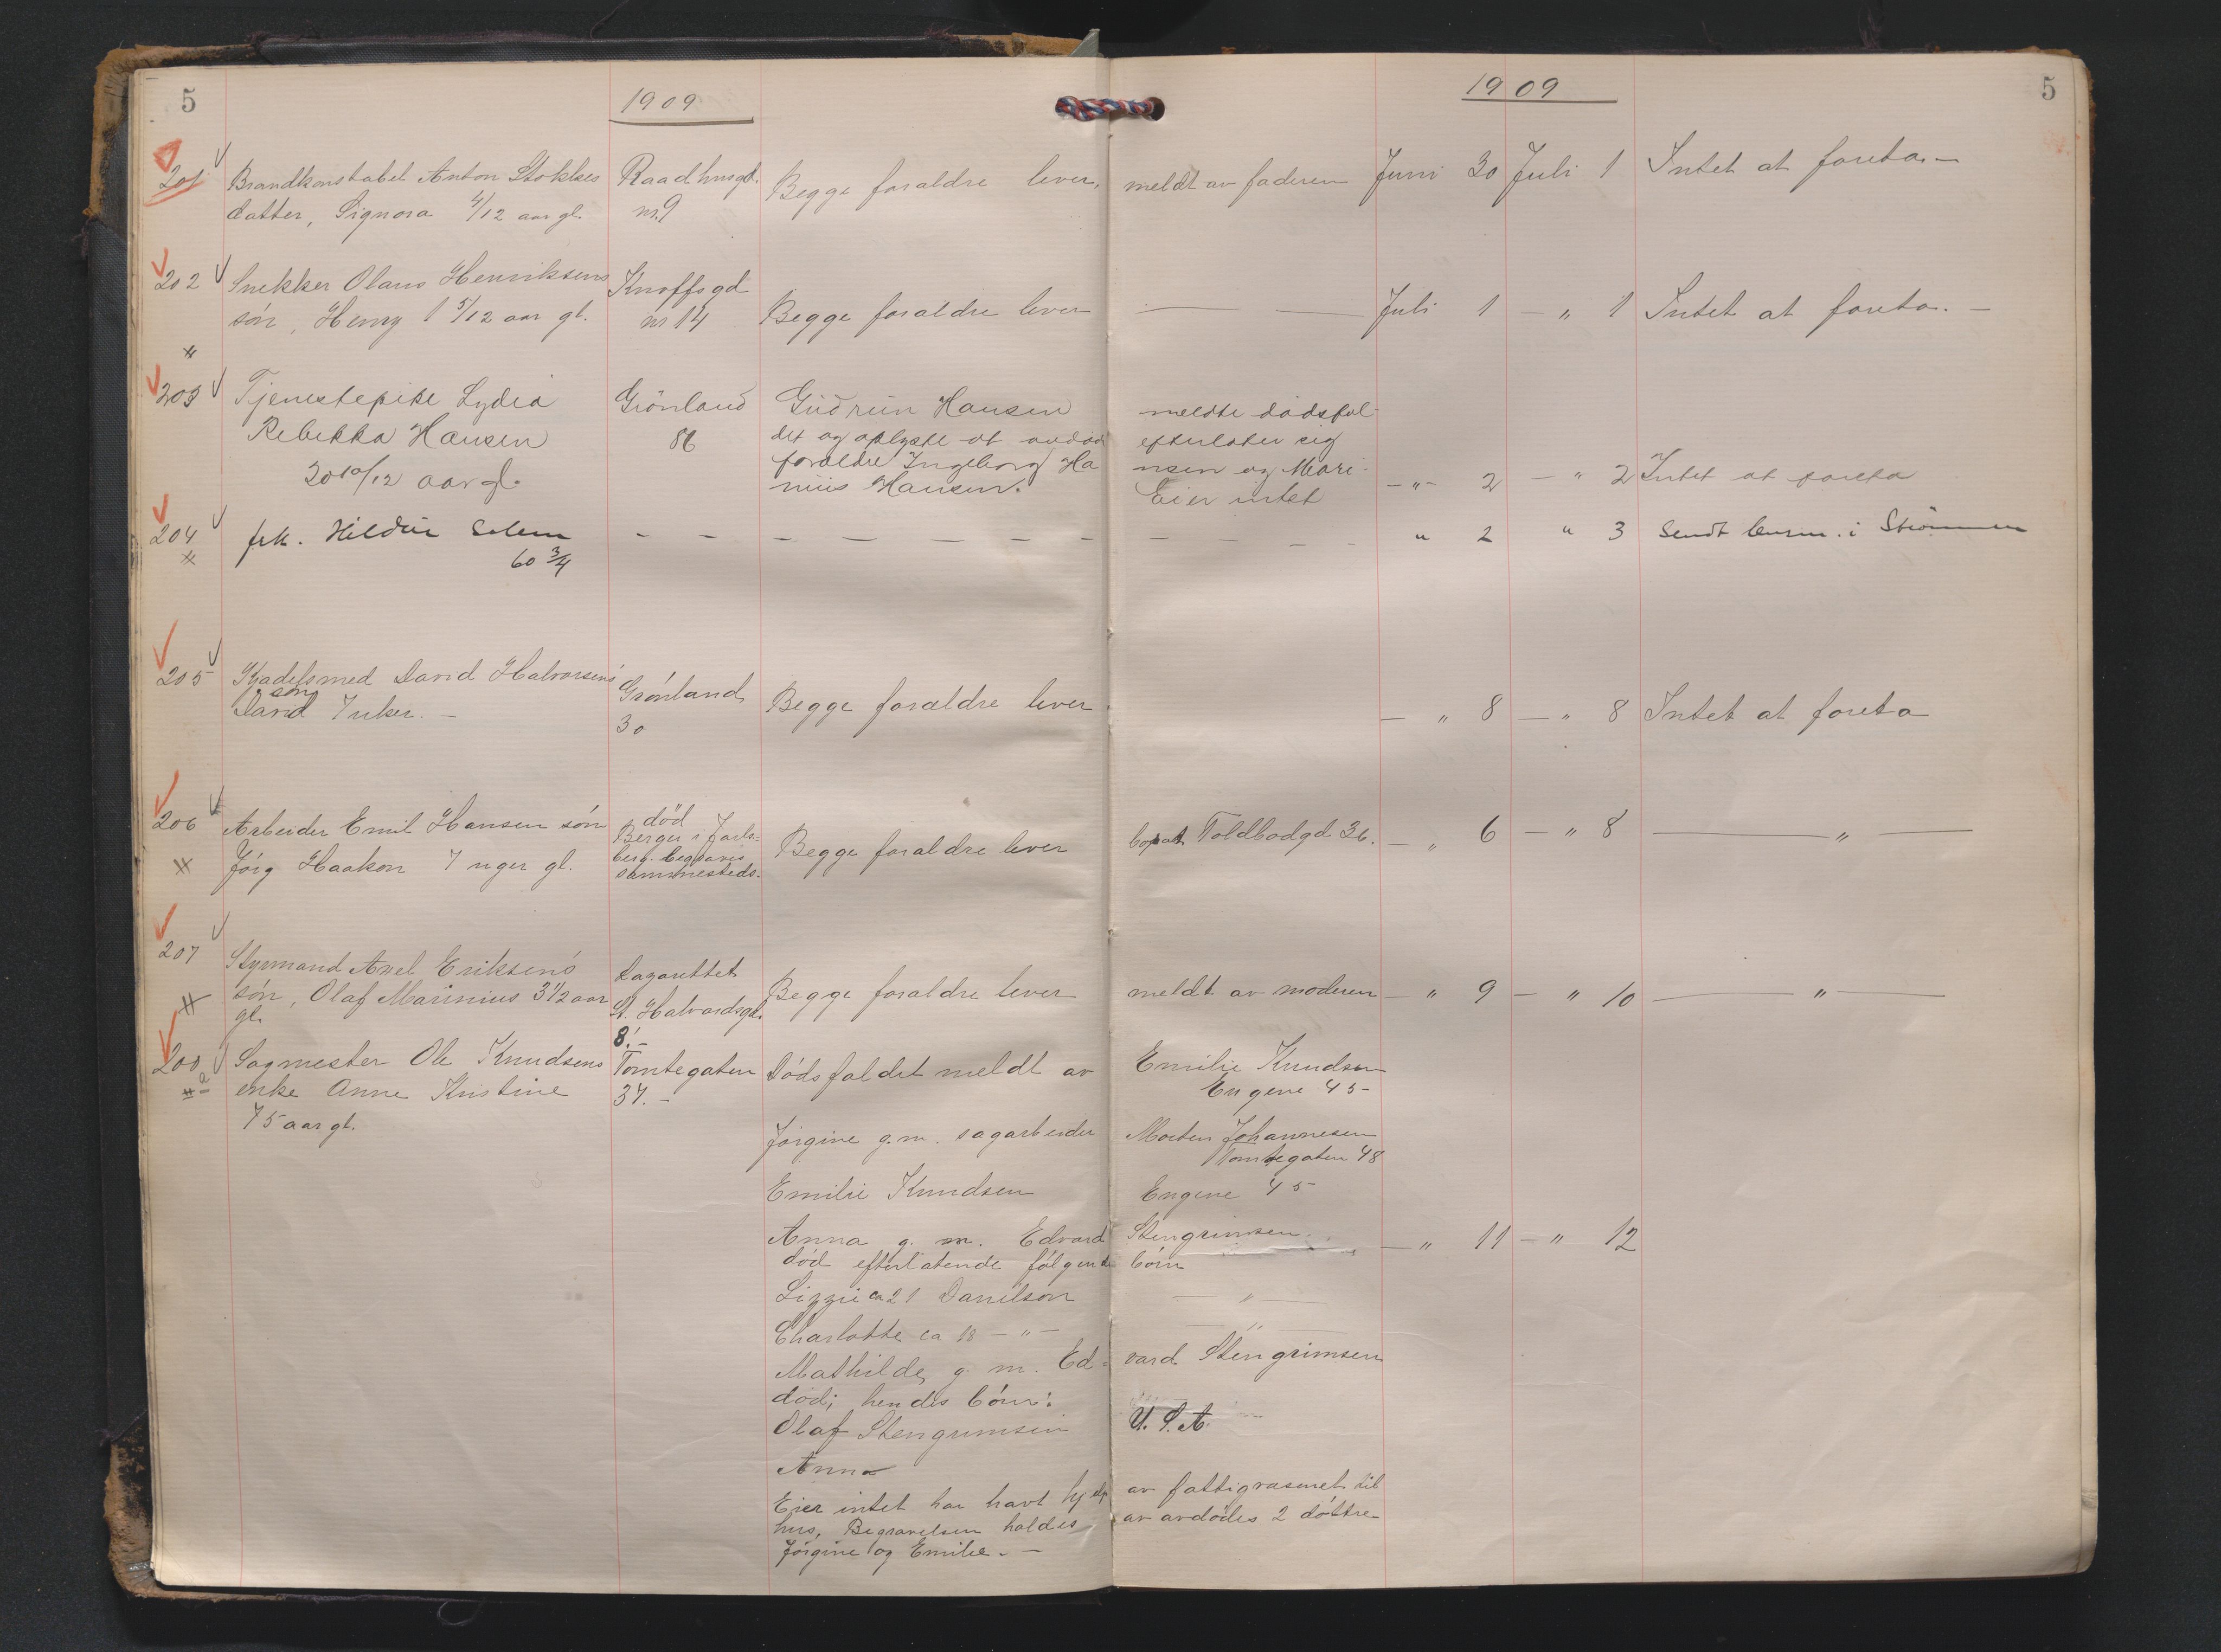 5
1909
1909
5
201 Brandkonstabel Anton Stokkes Raadhusgd. Begge foraldre lever, meldt av faderen Juni 30 Juli 1 Intet at foreta. —
datter, Signora 4/12 aar gl. nr. 9
202 Snekker Olaus Henriksens Knoffsgd
søn, Henry 1 5/12 aar gl. nr 14 Begge foraldre lever — — Juli 1 — " 1 Intet at foreta. —
203 Tjenestepike Lydia Grönland Gudrun Hansen meldte dødsfal-
Rebekka Hansen 86 det og oplyste at avdød efterlater sig
20 10/12 aar gl. foraldre Ingeborg Ha nsen og Mari-
nius Hansen. Eier intet — " — 2 — " 2 Intet at foreta
204 frk. Hildur Solem — — — — — — — — — — " 2 " 3 Sendt lensm. i Strömmen
60 3/4
205 David Halvorsens Grønland
søn
David 7 uker. — 30 Begge foraldre lever — " 8 — " 8 Intet at foreta
206 Arbeider Emil Hansen søn död
Berger i Jarls=
berg. begraves
Jörg Haakon 7 uger gl. sammesteds. Begge foraldre lever bopæl Toldbodgd 36. — " 6 — " 8 — " —
207 Styrmand Axel Eriksens Lazarettet
søn, Olaf Marinius 3 1/2 aar St. Halvardsgd. Begge foraldre lever meldt av moderen — " 9 — " 10 — " —
gl. 8. —
208 Sagmester Ole Knudsens Tomtegaten Dødsfaldet meldt av Emilie Knudsen
enke Anne Kristine 37. — Engene 45 —
75 aar gl.
Jørgine g. m. sagarbeider Morten Johannesen
Tomtegaten 48
Emilie Knudsen Engene 45
Anna g. m. Edvard Stengrimsen. — " 11 — " 12
död efterlatende følgende börn
Lizzie ca 21 Danilson — " —
Charlotte ca 18 — " — — " —
Mathilde, g. m. Ed= vard Stengrimsen
död; hendes börn:
Olaf Stengrimsen U. S. A.
Anna
Eier intet har havt hjelp av fattigvæsenet til
hus, Begravelsen holdes av avdødes 2 døttre
Jørgine og Emilie. —